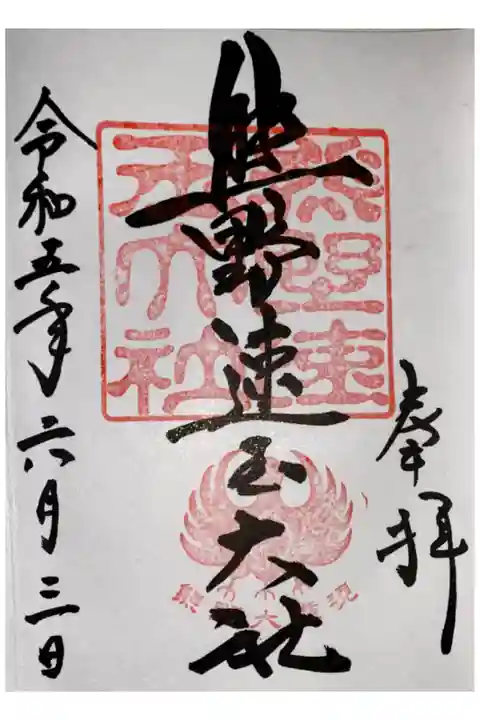 奉拝
熊野速玉大社
熊野速玉大社
熊野大権現
令和五年六月三日